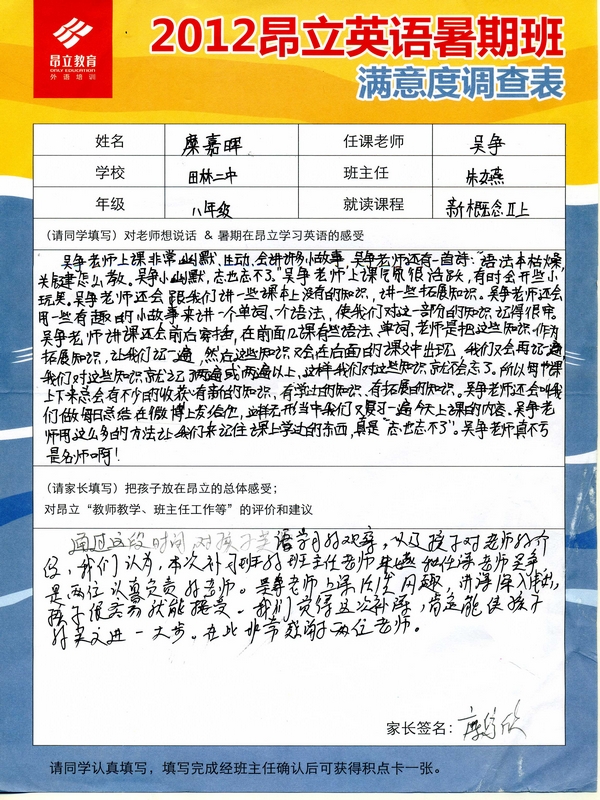 昂立教育
ONLY EDUCATION
外语培训
2012昂立英语暑期班
满意度调查表
姓名 糜嘉晖 任课老师 吴争
学校 田林二中 班主任 朱燕
年级 八年级 就读课程 新概念II上
(请同学填写)对老师想说话 & 暑期在昂立学习英语的感受
吴争老师上课非常幽默、生动,会讲许多小故事,吴争老师还有一首诗:“语法本枯燥
关键怎么教。吴争小幽默,忘也忘不了。”吴争老师上课气氛很活跃,有时会开些小
玩笑。吴争老师还会跟我们讲一些课本上没有的知识,讲一些拓展知识。吴争老师还会
用一些有趣的小故事来讲一个单词、个语法,使我们对这一部分的知识记得很牢
吴争老师讲课还会前后穿插,在前面几课有些语法、单词,老师是把这些知识作为
拓展知识,让我们记一遍,然后这些知识又会在后面的课文中出现,我们又会再记一遍,
我们对这些知识就记了两遍或两遍以上,这样我们对这些知识就不会忘了。所以每节课
上下来总会有不少的收获:有新的知识、有学过的知识、有拓展的知识。吴争老师还会叫我
们做每日总结在微博上发给他,这样无形当中我们又复习一遍今天上课的内容。吴争老
师用这么多的方法让我们来记住课上学过的东西,真是“忘也忘不了”。吴争老师真不亏
是名师啊!
(请家长填写)把孩子放在昂立的总体感受;
对昂立“教师教学、班主任工作等”的评价和建议
通过这段时间对孩子英语学习的观察,以及孩子对老师的介
绍,我们认为,本次补习班的班主任老师朱燕和任课老师吴争
是两位认真负责的老师。吴争老师上课风趣,讲解深入浅出,
孩子很容易就能接受。我们觉得这次补课,肯定能使孩子
的英文进一大步。在此非常感谢两位老师。
家长签名:
请同学认真填写,填写完成经班主任确认后可获得积点卡一张。